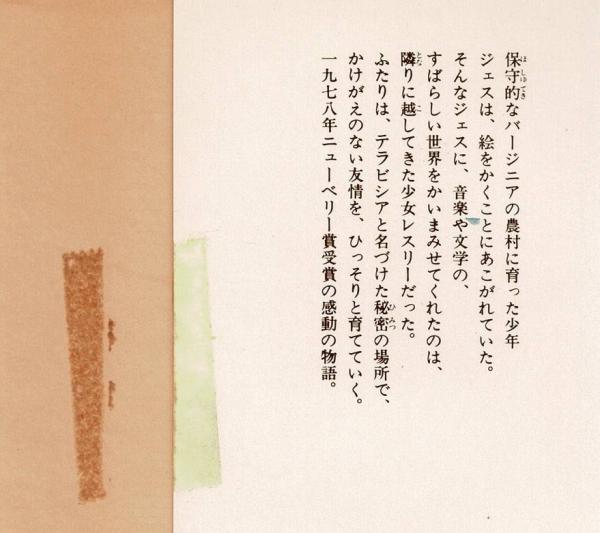 保守的なバージニアの農村に育った少年
ジェスは、絵をかくことにあこがれていた。
そんなジェスに、音楽や文学の、
すばらしい世界をかいまみせてくれたのは、
隣りに越してきた少女レスリーだった。
ふたりは、テラビシアと名づけた秘密の場所で、
かけがえのない友情を、ひっそりと育てていく。
一九七八年ニューベリー賞受賞の感動の物語。